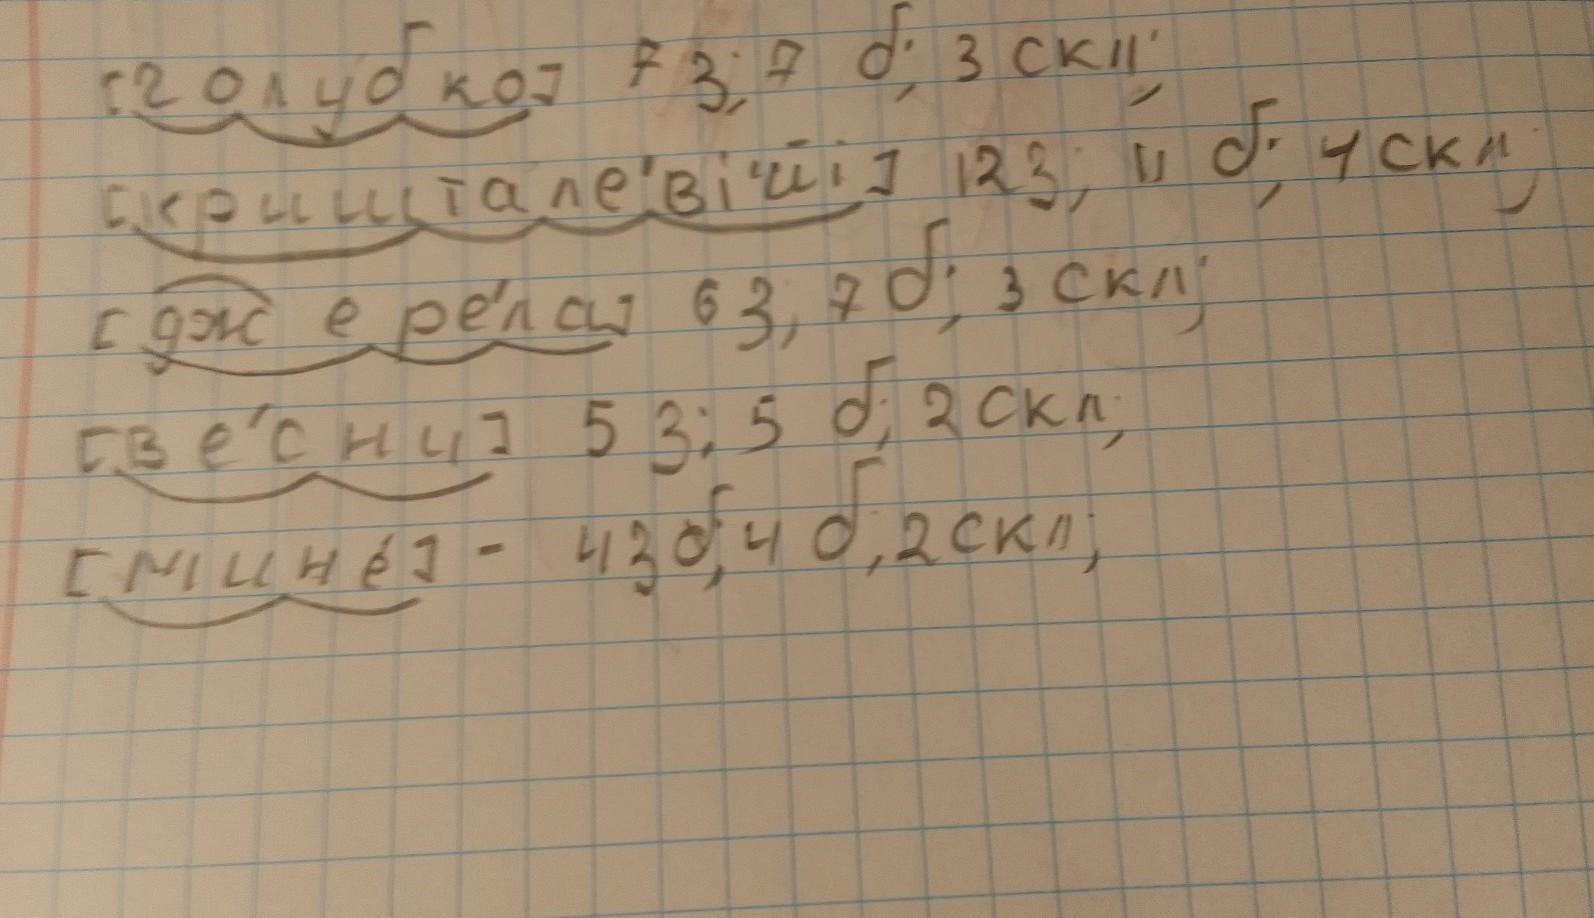 [голубко] 7 з; 7 б; 3 скл;
[кришտале'ві'йі] 12 з; 11 б; 4 скл;
[джере́ла] 6 з; 7 б; 3 скл;
[ве'сни] 5 з; 5 б; 2 скл;
[мине́] - 4 з б, 4 б, 2 скл;